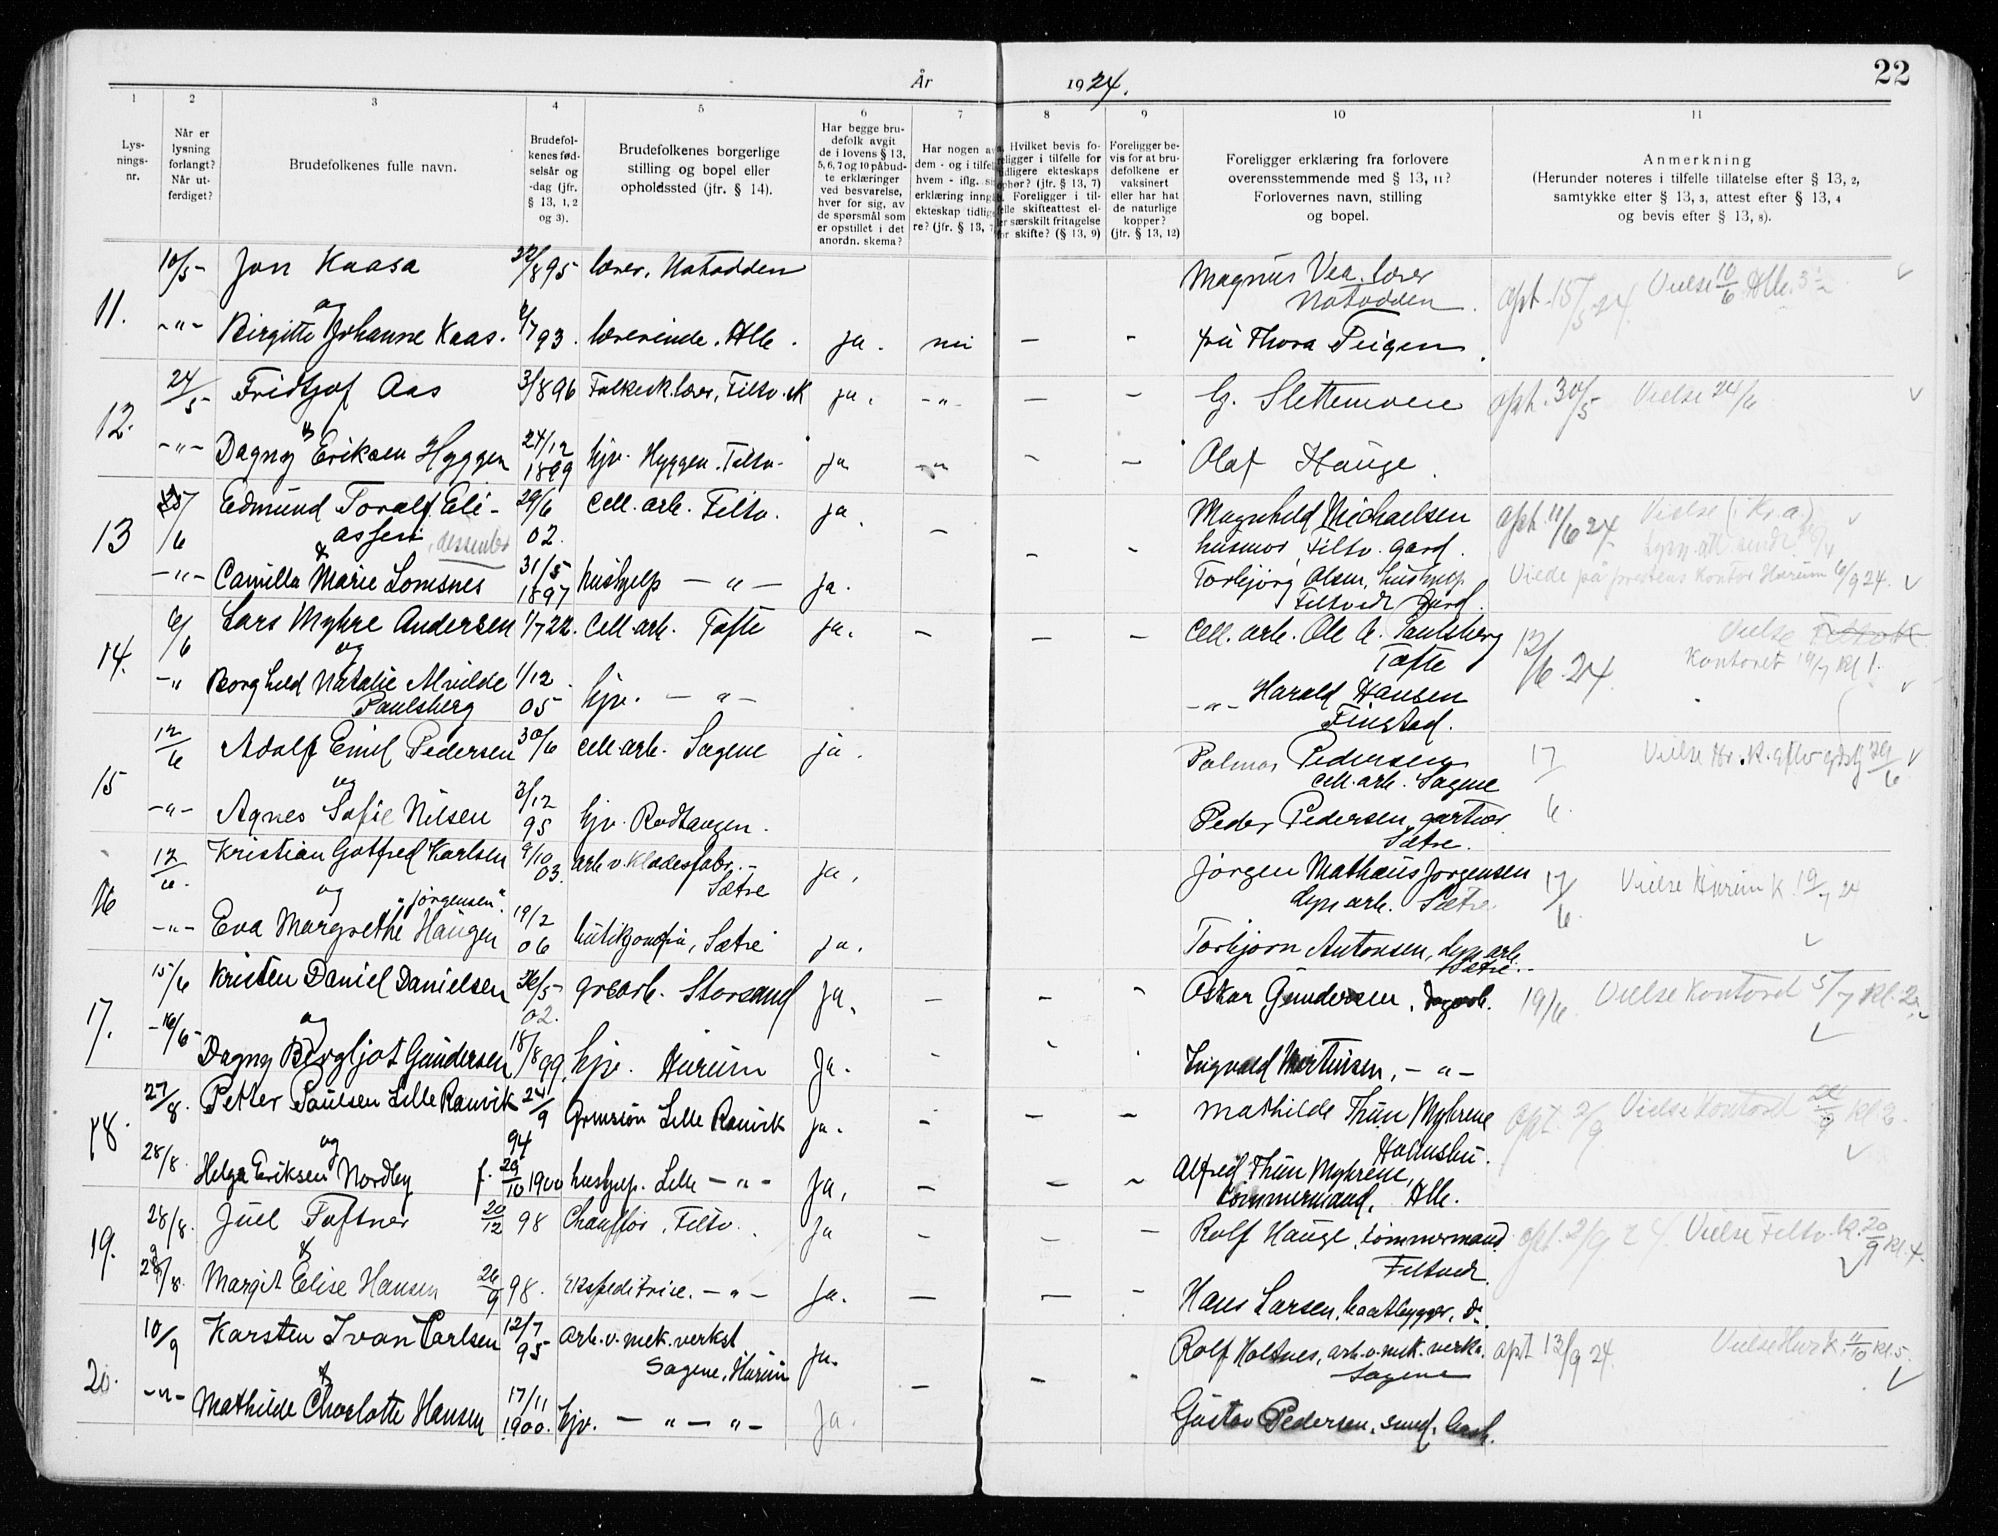 År 1924.
22
1 2 3 4 5 6 7 8 9 10 11
Lysningsnr.
Når er lysning forlangt? Når utferdiget?
Brudefolkenes fulle navn.
Brudefolkenes fødselsår og -dag (jfr. § 13, 1, 2 og 3).
Brudefolkenes borgerlige stilling og bopel eller opholdssted (jfr. § 14).
Har begge brudefolk avgit de i lovens § 13, 5, 6, 7 og 10 påbudte erklæringer ved besvarelse, hver for sig, av de spørsmål som er opstillet i det anordn. skema?
Foreligger bevis for at brudefolkene er vaksinert eller har hat de naturlige kopper? (jfr. § 13, 12)
Foreligger erklæring fra forlovere overensstemmende med § 13, 11? Forlovernes navn, stilling og bopel.
Anmerkning
(Herunder noteres i tilfelle tillatelse efter § 13, 2, samtykke efter § 13, 3, attest efter § 13, 4 og bevis efter § 13, 8).
11. 10/5 - Jon Kaasa 22/8 95 lærer, Notodden Magnus Vea lærer Notodden opt. 15/5 24. Vielse 10/6
og
-"- Birgitte Johanne Kaas. 93. lærerinde. Alle. ja. nei - - fru Thora Teigen.
12. 24/5 Fridtjof Aas 3/8 96 Folkesk.lærer, Filtv. ja. -"- - - G. Slettemoen opt. 30/5 Vielse 24/6
-"- Dagny Eriksen Hyggen 24/12 1899 hjv. Hyggen. Filtv. ja -"- - - Olaf Hauge.
13 25/6 Edmund Toralf Eliassen 29/6 02. Cell. arb. Filtv. ja. Magnhild Michaelsen husmor, Filtv. gard. opt. 11/6 24 Vielse (i Kr.a)
&
-"- Camilla Marie Lomsnes 31/5 1897 hushjelp -"- ja. Torbjørg Olsen, hushjelp Filtvedt Gard. Viede på prestens kontor Hurum 6/9 24.
14. 6/6 Lars Myhre Andersen 1/7 22. Cell. arb. Tofte ja. - - - Cell. arb. Ole A. Paulsberg Tofte 12/6 24. Vielse Kontoret 19/7 kl 1.
og
-" Borghild Natalie Alvilde Paulsberg 1/12 05 hjv. -"- -"- Harald Hansen Finstad.
15 12/6 Adolf Emil Pedersen 30/6 cell. arb. Sagene ja. Palmar Pedersen cell. arb. Sagene 17/6.
og
-"- Agnes Sofie Nilsen 3/12 95 hjv. Rødtangen. Peder Pedersen, gartner Sætre.
16 12/6. Kristian Gotfred Karlsen 9/10 03. arb. v. Klædesfabr. - Sætre ja. Jørgen Mathæus Jørgensen dyn. arb. Sætre 17/6 Vielse Hurum k. 19/7 24
og "Jørgensen".
-"- Eva Margrethe Haugen 19/2 06 butikjomfru, Sætre ja. Torbjørn Antonsen, dyn. arb. Sætre.
17. 15/6 Kristen Daniel Danielsen 26/5 02. Storsand ja. - - - Oskar Gundersen, 19/6. Vielse Kontoret 5/7 kl. 2
og
-16/6- Dagny Bergljot Gundersen 18/8 99. hjv. Hurum Ja. - - - Ingvald Martinsen, -"-
18. 27/8. Petter Paulsen Lille Ramvik 24/9 94 Grmsøn Lille Ramvik ja. - - - Mathilde Thun Myhrene Holmsbu. opt. 2/9 Vielse Kontoret
og
28/8. Helga Eriksen Nordby f. 29/10 1900 hushjelp. Lille -"- Ja. - - - Alfred Thun Myhrene, tømmermand, Alle.
19. 28/8. Juel Toftner 20/12 98 Chauffør, Filtv. Ja - - - Rolf Hauge, tømmermand Filtvedt. opt. 2/9 24. Vielse Filtv. k. 20/9 kl. 4.
&
/8. Margit Elise Hansen 26/9 98. Ekspeditrice. -"- Ja. - - - Hans Larsen, baatbygger, do.
20. 10/9 Karsten Ivan Carlsen 12/7 95 arb. v. mek. verkst Sagene, Hurum Ja. Rolf Holtnes, arb. v. mek. verks. Sagene opt 13/9 24. Vielse Hur k. 11/10 kl 5.
&
-"- Mathilde Charlotte Hansen 17/11 1900. hjv. -"-"- Ja. - - - Gustav Pedersen,